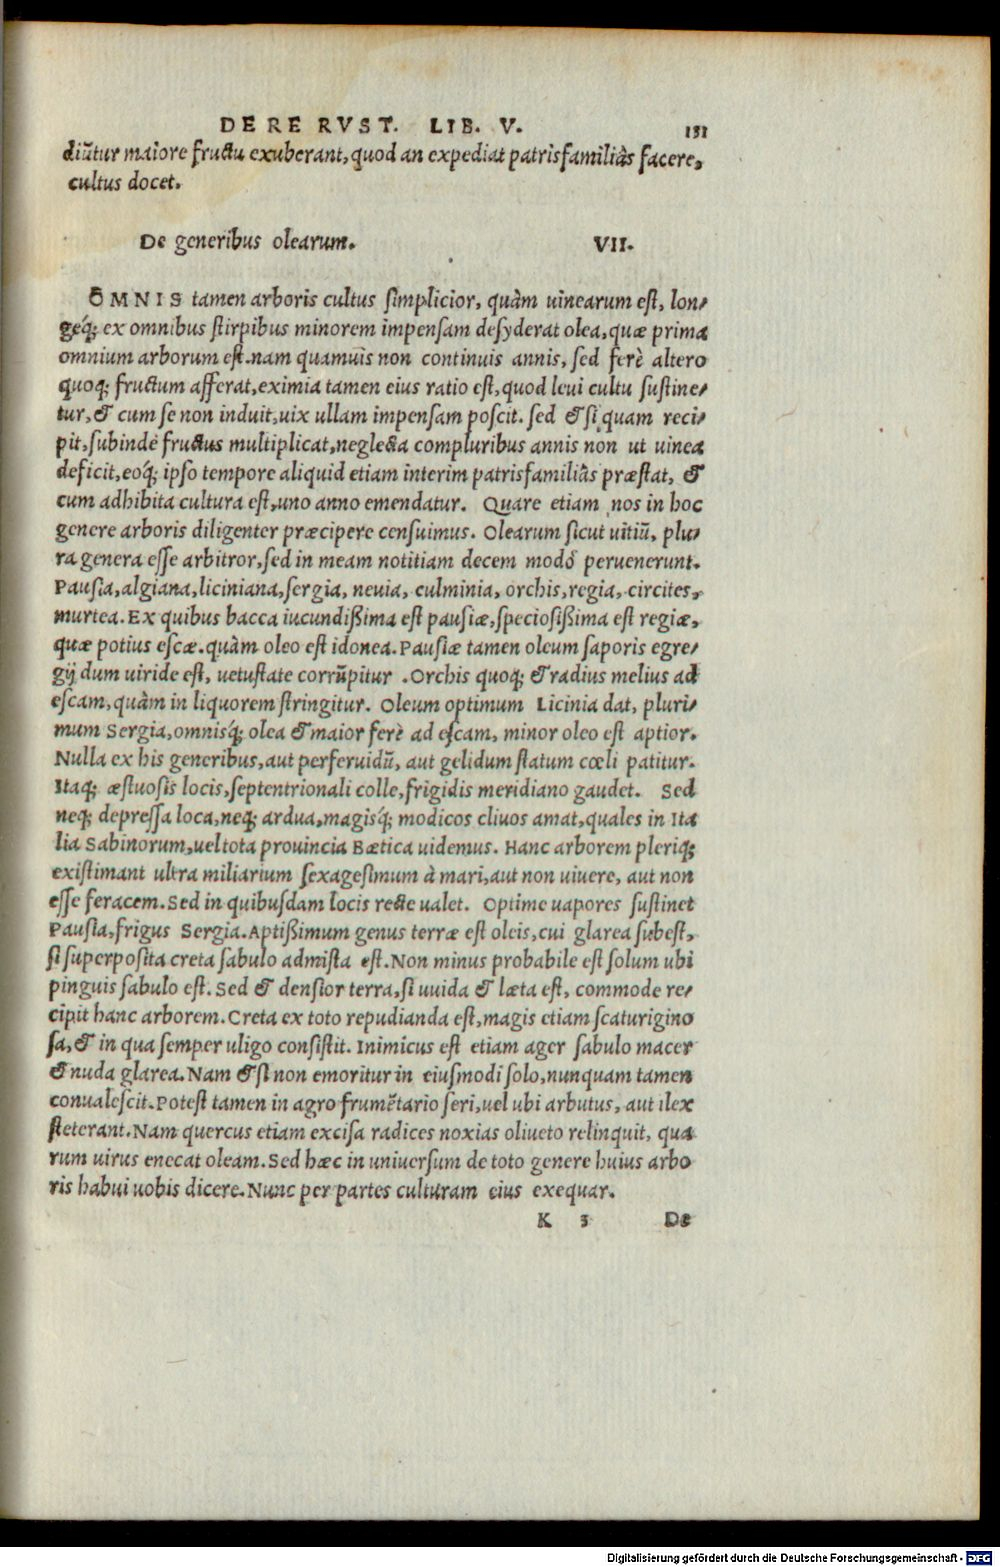 DE RE RVST. LIB. V. 151
diũtur maiore fructu exuberant, quod an expediat patrisfamiliâs facere,
cultus docet.
De generibus olearum. VII.
OMNIS tamen arboris cultus simplicior, quàm uinearum est, lon/
geq́; ex omnibus stirpibus minorem impensam desyderat olea, quæ prima
omnium arborum est. nam quamuis non continuis annis, sed ferè altero
quoq; fructum afferat, eximia tamen eius ratio est, quod leui cultu sustine/
tur, & cum se non induit, uix ullam impensam poscit. sed & si quam reci/
pit, subinde fructus multiplicat, neglecta compluribus annis non ut uinea
deficit, eoq́; ipso tempore aliquid etiam interim patrisfamiliâs præstat, &
cum adhibita cultura est, uno anno emendatur. Quare etiam nos in hoc
genere arboris diligenter præcipere censuimus. Olearum sicut uitiũ, plu/
ra genera esse arbitror, sed in meam notitiam decem modo peruenerunt.
Pausia, algiana, liciniana, sergia, neuia, culminia, orchis, regia, circites,
murtea. Ex quibus bacca iucundißima est pausiæ, speciosißima est regiæ,
quæ potius escæ. quàm oleo est idonea. Pausiæ tamen oleum saporis egre/
gij dum uiride est, uetustate corrũpitur . Orchis quoq; & radius melius ad
escam, quàm in liquorem stringitur. Oleum optimum Licinia dat, pluri/
mum Sergia, omnisq́; olea & maior ferè ad escam, minor oleo est aptior.
Nulla ex his generibus, aut perferuidũ, aut gelidum statum cœli patitur.
Itaq; æstuosis locis, septentrionali colle, frigidis meridiano gaudet. Sed
neq; depressa loca, neq; ardua, magisq́; modicos cliuos amat, quales in Ita
lia Sabinorum, uel tota prouincia Bætica uidemus. Hanc arborem pleriq;
existimant ultra miliarium sexagesimum à mari, aut non uiuere, aut non
esse feracem. Sed in quibusdam locis recte ualet. Optime uapores sustinet
Pausia, frigus Sergia. Aptißimum genus terræ est oleis, cui glarea subest,
si superposita creta sabulo admista est. Non minus probabile est solum ubi
pinguis sabulo est. Sed & densior terra, si uuida & læta est, commode re/
cipit hanc arborem. Creta ex toto repudianda est, magis etiam scaturigino
sa, & in qua semper uligo consistit. Inimicus est etiam ager sabulo macer
& nuda glarea. Nam & si non emoritur in eiusmodi solo, nunquam tamen
conualescit. Potest tamen in agro frumẽtario seri, uel ubi arbutus, aut ilex
steterant. Nam quercus etiam excisa radices noxias oliueto relinquit, qua
rum uirus enecat oleam. Sed hæc in uniuersum de toto genere huius arbo
ris habui uobis dicere. Nunc per partes culturam eius exequar.
K 3 De
Digitalisierung gefördert durch die Deutsche Forschungsgemeinschaft - DFG